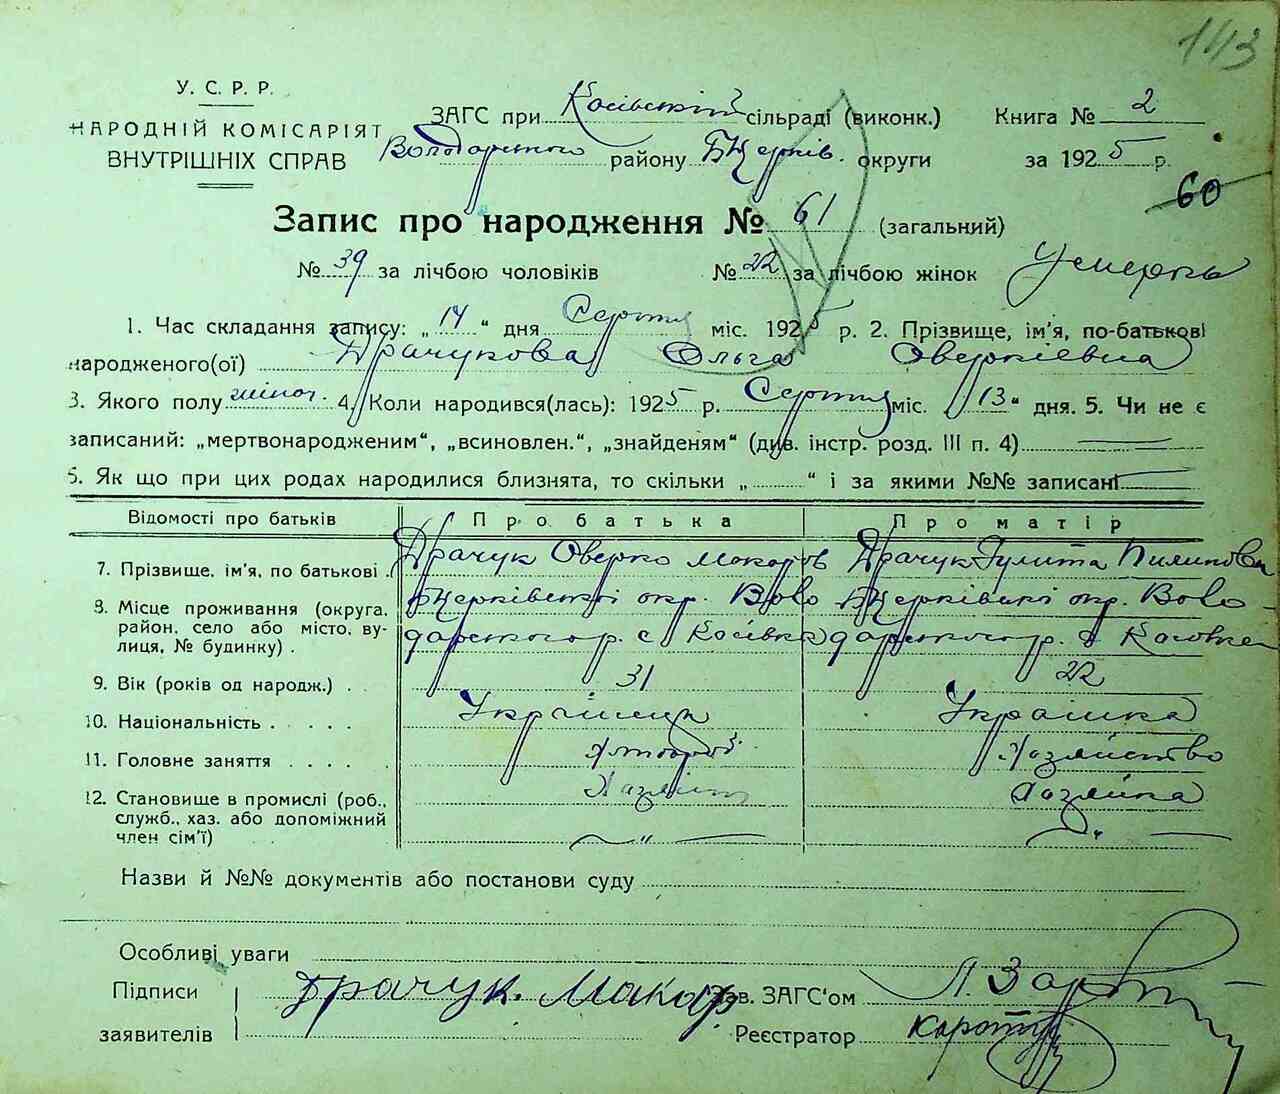 143
У. С. Р. Р.
НАРОДНІЙ КОМІСАРІЯТ
ВНУТРІШНІХ СПРАВ
ЗАГС при Косівській сільраді (виконк.) Книга № 2
Володарського району БЦерків. округи за 1925 р.
60
Запис про народження № 61 (загальний)
№ 39 за лічбою чоловіків № 22 за лічбою жінок
1. Час складання запису: „ 14 “ дня Серпня міс. 1925 р. 2. Прізвище, ім'я, по-батькові
народженого(ої) Драчукова Ольга Оверкіевна
3. Якого полу жіноч. 4. Коли народився(лась): 1925 р. Серпня міс. „ 13 “ дня. 5. Чи не є
записаний: „мертвонародженим“, „всиновлен.“, „знайденям“ (див. інстр. розд. III п. 4)
6. Як що при цих родах народилися близнята, то скільки „ “ і за якими №№ записані
Відомості про батьків Про батька Про матір
7. Прізвище, ім'я, по батькові Драчук Оверко Макаров Драчук Пилипова
8. Місце проживання (округа, район, село або місто, вулиця, № будинку) БЦерківської окр. Володарського р. с Косівка БЦерківські окр. Володарського р. с Косовке
9. Вік (років од народж.) 31 22
10. Національність Українець Украінка
11. Головне заняття Хлібороб Хазяйство
12. Становище в промислі (роб., служб., хаз. або допоміжний член сім'ї) Хазяїн Хазяйка
„ „
Назви й №№ документів або постанови суду
Особливі уваги
Підписи
заявителів
Драчук. Макар
Зав. ЗАГС'ом
Реєстратор